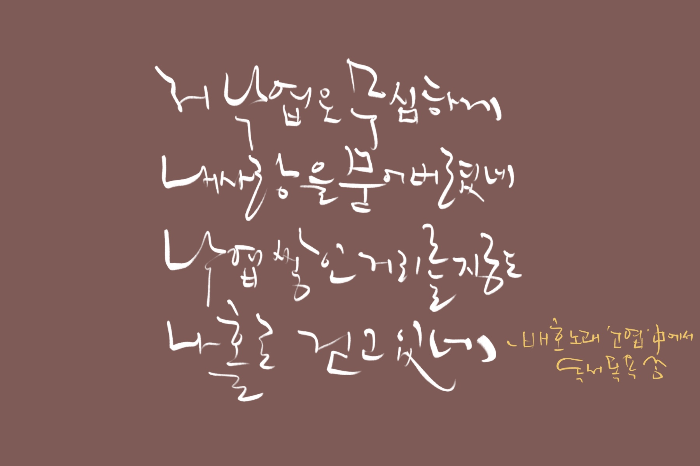 저 낙엽은 무심하게
내 사랑을 묻어버렸네
낙엽 쌓인 거리를 지금도
나 홀로 걷고 있네
배호 노래 '낙엽' 中에서
씀